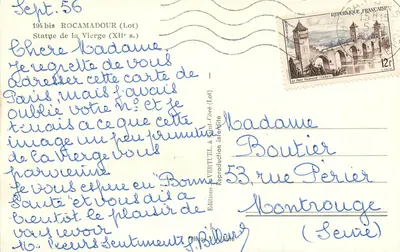 Sept. 56
194 bis ROCAMADOUR (Lot)
Statue de la Vierge (XIIe s.)
Chere Madame,
Je regrette de vous
adresser cette carte de
Paris, mais j'avais
oublié votre N° et je
tenais a ce que cette
image un peu primitive
de la Vierge vous
parvienne
Je vous espere en "Bonne
Santé" et vous dis a
bientot le plaisir de
vous revoir
sentiments
RÉPUBLIQUE FRANÇAISE
12F
Reproduction interdite
Madame
Boutier
53, rue Périer
Montrouge
(Seine)